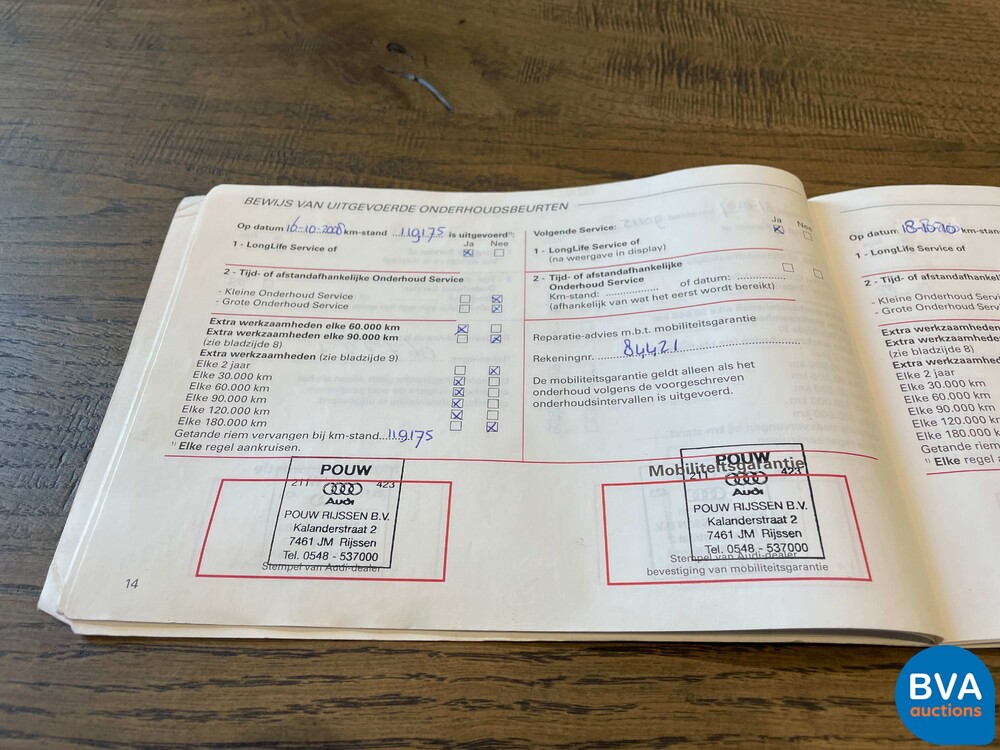 BEWIJS VAN UITGEVOERDE ONDERHOUDSBEURTEN
Op datum 16-10-2008 km-stand ...119.175 is uitgevoerd¹⁾:
Ja Nee
1 - LongLife Service of
2 - Tijd- of afstandafhankelijke Onderhoud Service
- Kleine Onderhoud Service
- Grote Onderhoud Service
Extra werkzaamheden elke 60.000 km
Extra werkzaamheden elke 90.000 km
(zie bladzijde 8)
Extra werkzaamheden (zie bladzijde 9)
Elke 2 jaar
Elke 30.000 km
Elke 60.000 km
Elke 90.000 km
Elke 120.000 km
Elke 180.000 km
Getande riem vervangen bij km-stand...119.175
¹⁾ Elke regel aankruisen.
POUW
211 423
Audi
POUW RIJSSEN B.V.
Kalanderstraat 2
7461 JM Rijssen
Tel. 0548 - 537000
Stempel van Audi-dealer
14
Volgende Service:
Ja Nee
1 - LongLife Service of
(na weergave in display)
2 - Tijd- of afstandafhankelijke
Onderhoud Service
Km-stand: .................. of datum: ...............
(afhankelijk van wat het eerst wordt bereikt)
Reparatie-advies m.b.t. mobiliteitsgarantie
Rekeningnr. ........84421........
De mobiliteitsgarantie geldt alleen als het
onderhoud volgens de voorgeschreven
onderhoudsintervallen is uitgevoerd.
Mobiliteitsgarantie
POUW
211 423
Audi
POUW RIJSSEN B.V.
Kalanderstraat 2
7461 JM Rijssen
Tel. 0548 - 537000
Stempel van Audi-dealer
bevestiging van mobiliteitsgarantie
Op datum km-stan
1 - LongLife Service of
2 - Tijd- of afstandafhan
- Kleine Onderhoud Serv
- Grote Onderhoud Serv
Extra werkzaamheden
Extra werkzaamheden
(zie bladzijde 8)
Extra werkzaamheden
Elke 2 jaar
Elke 30.000 km
Elke 60.000 km
Elke 90.000 km
Elke 120.000 km
Elke 180.000 k
Getande riem
¹⁾ Elke regel aan
BVA
auctions